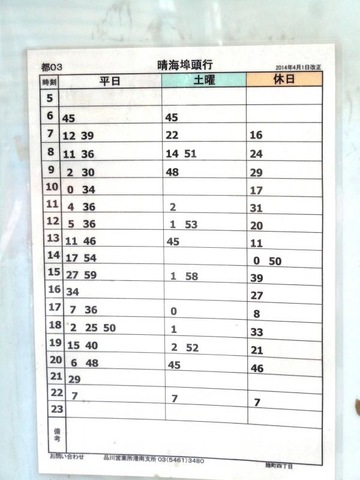 都03 晴海埠頭行 2014年4月1日改正
時刻 平日 土曜 休日
5
6 45 45
7 12 39 22 16
8 11 36 14 51 24
9 2 30 48 29
10 0 34 17
11 4 36 2 31
12 5 36 1 53 20
13 11 46 45 11
14 17 54 0 50
15 27 59 1 58 39
16 34 27
17 7 36 0 8
18 2 25 50 1 33
19 15 40 2 52 21
20 6 48 45 46
21 29
22 7 7 7
23
備考
お問い合わせ 品川営業所港南支所 03(5461)3480 麹町四丁目